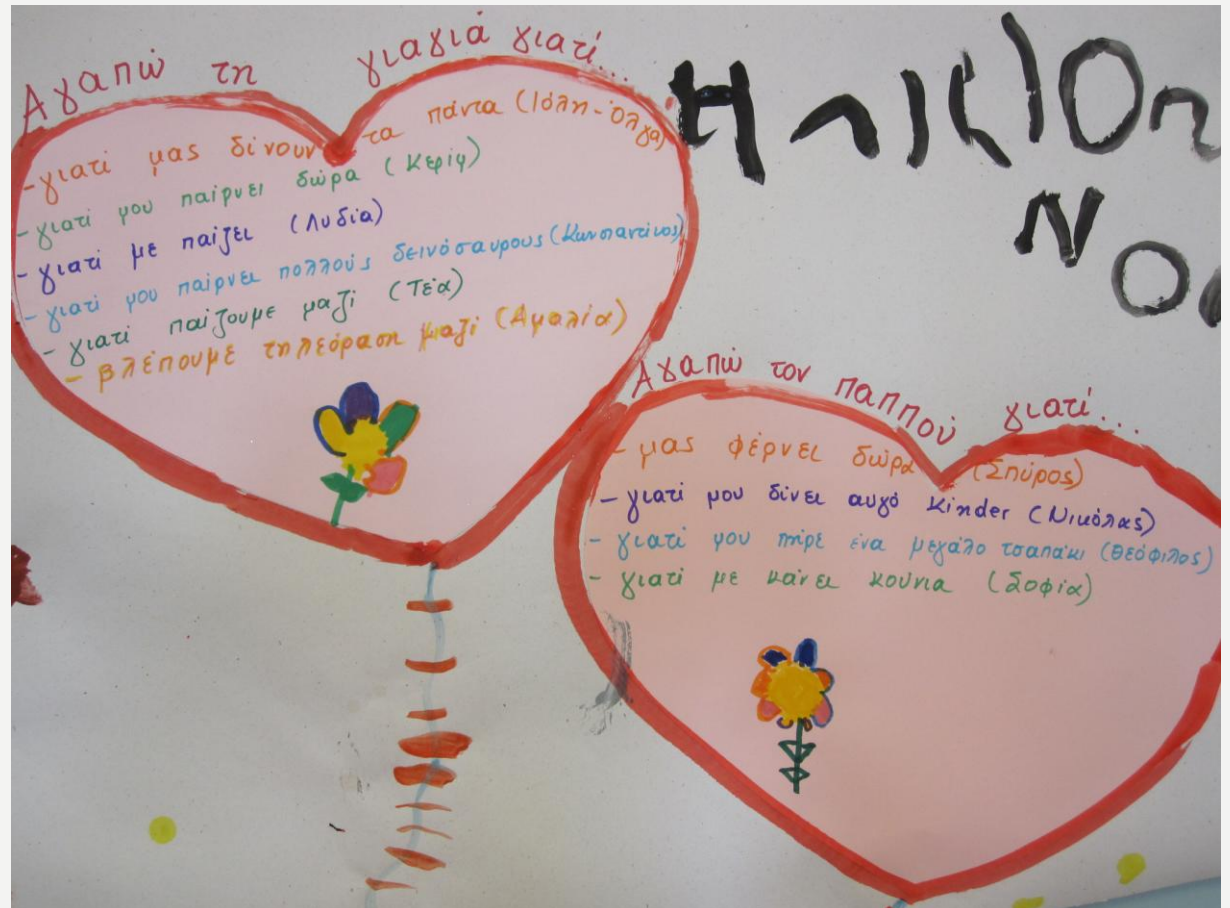 Αγαπώ τη γιαγιά γιατί...
-γιατί μας δίνουν τα πάντα (Ιόλη-Όλγα)
-γιατί μου παίρνει δώρα (Κερίφ)
-γιατί με παίζει (Λυδία)
-γιατί μου παίρνει πολλούς δεινόσαυρους (Κωνσταντίνος)
-γιατί παίζουμε μαζί (Τέα)
- βλέπουμε τηλεόραση μαζί (Αμαλία)
Αγαπώ τον παππού γιατί...
- μας φέρνει δώρα (Σπύρος)
- γιατί μου δίνει αυγό Kinder (Νικόλας)
- γιατί μου πήρε ένα μεγάλο τσαπάκι (Θεόφιλος)
- γιατί με κάνει κούνια (Σοφία)